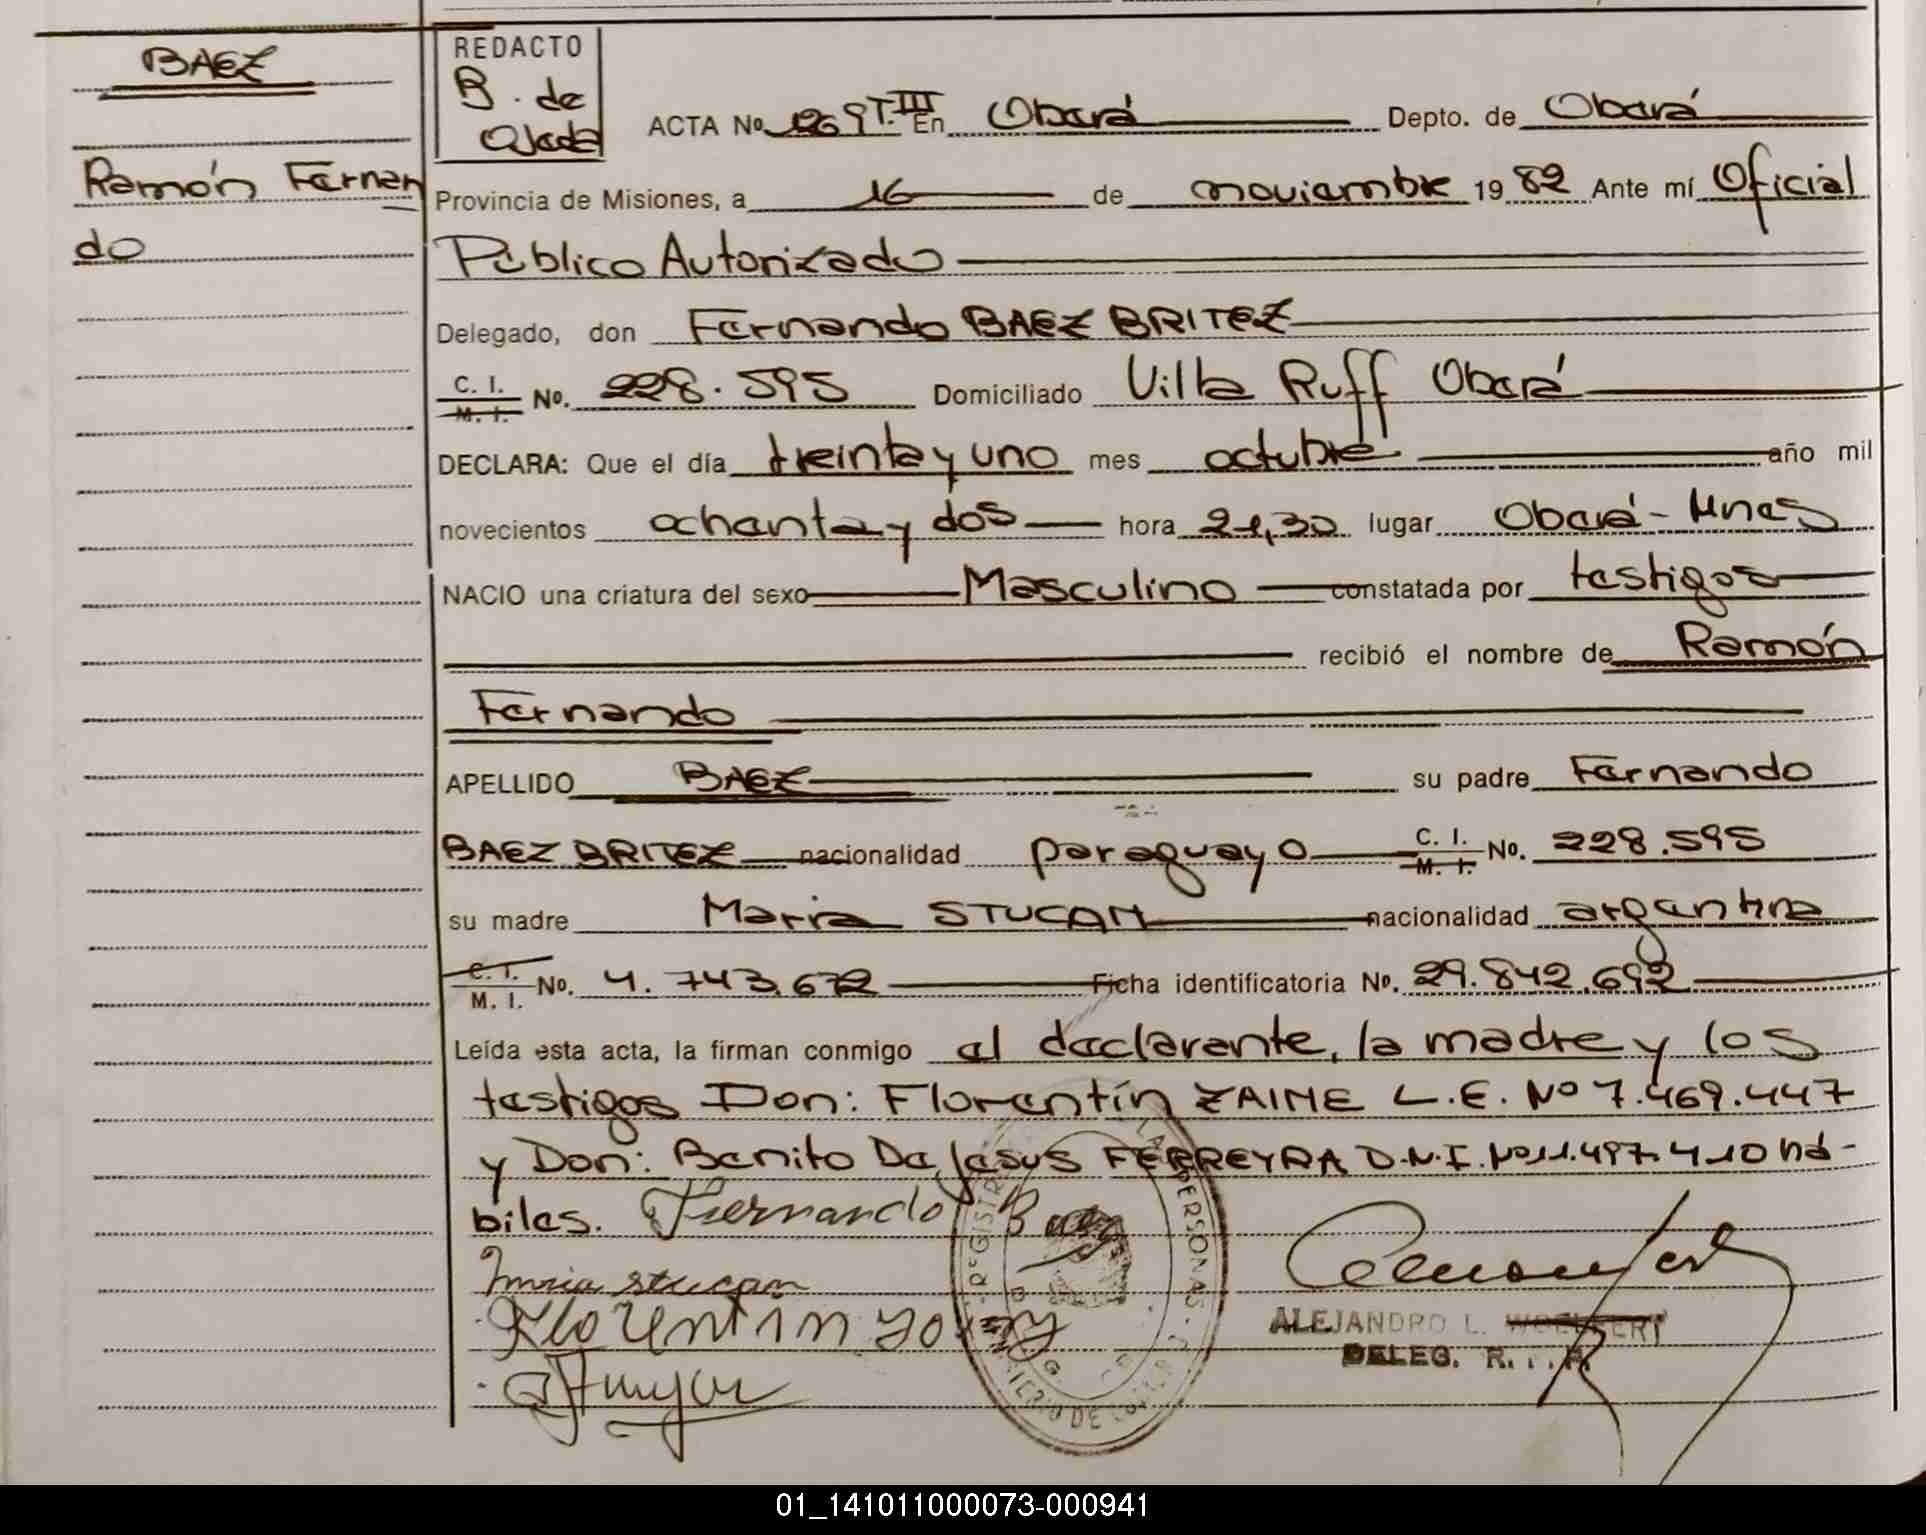 BAEZ
Ramón Fernan
do
REDACTO
B. de
Ojeda
ACTA No 1269 T.III En Oberá Depto. de Oberá
Provincia de Misiones, a 16 de noviembre 1982 Ante mí Oficial
Público Autorizado
Delegado, don Fernando BAEZ BRITEZ
C. I.
M. I. No. 228.595 Domiciliado Villa Ruff Oberá
DECLARA: Que el día treinta y uno mes octubre año mil
novecientos ochenta y dos hora 21,30 lugar Oberá - Mnes
NACIO una criatura del sexo Masculino constatada por testigos
recibió el nombre de Ramón
Fernando
APELLIDO BAEZ su padre Fernando
BAEZ BRITEZ nacionalidad paraguayo C. I. M. I. No. 228.595
su madre Maria STUCAN nacionalidad argentina
C. I.
M. I. No. 4.743.672 Ficha identificatoria No. 29.842.692
Leída esta acta, la firman conmigo el declarante, la madre y los
testigos Don: Florentín ZAIME L.E. No 7.469.447
y Don: Benito De Jesus FERREYRA D.N.I. No 11.497.410 há-
biles. Fernando Baez
Maria Stucan
Florentin
REGISTRO LAS PERSONAS
MINISTERIO DE
ALEJANDRO L.
DELEG. R.
01_141011000073-000941